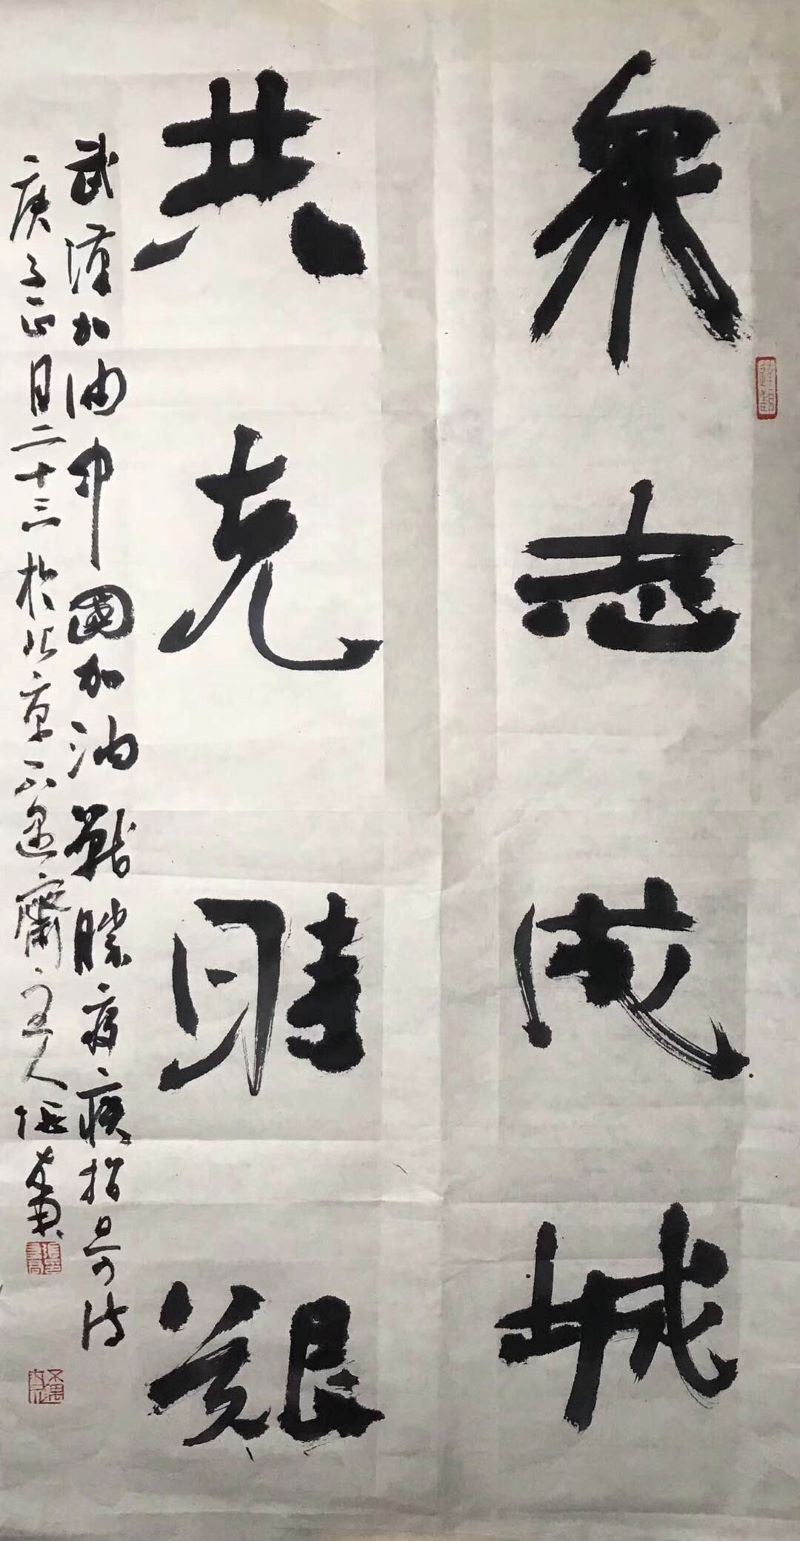 眾志成城
共克時艱
武漢加油中國加油戰勝疫痍指日可待
庚子正月二十三於北京不遇齋主人